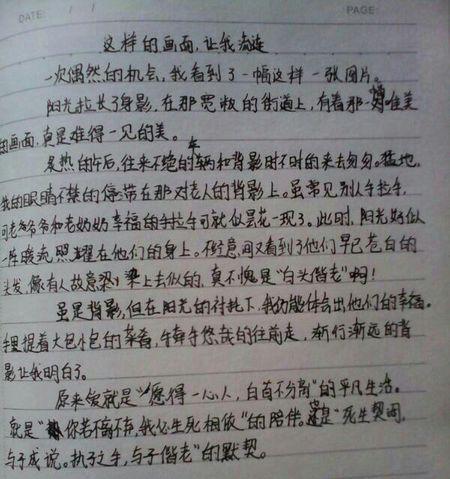 DATE: / /
PAGE:
这样的画面,让我流连
一次偶然的机会,我看到了一幅这样一张图片。
阳光拉长了身影,在那宽敞的街道上,有着那一幅唯美
的画面,真是难得一见的美。
炙热的午后,往来不绝的车辆和背影时不时的来去匆匆。猛地,
我的眼睛不禁的停滞在那对老人的背影上。虽常见别人手拉手,
可老爷爷和老奶奶幸福的手拉手可就似昙花一现了。此时,阳光好似
一阵暖流照耀在他们的身上。不经意间又看到了他们早已苍白的
头发,像有人故意染上去似的,真不愧是“白头偕老”啊!
虽是背影,但在阳光的衬托下,我仍能体会出他们的幸福。
手里提着大包小包的菜肴,手牵手悠哉的往前走,渐行渐远的背
影让我明白了。
原来爱就是“愿得一心人,白首不分离”的平凡生活。
就是“你若不离不弃,我必生死相依”的陪伴。也是“死生契阔,
与子成说。执子之手,与子偕老”的默契。